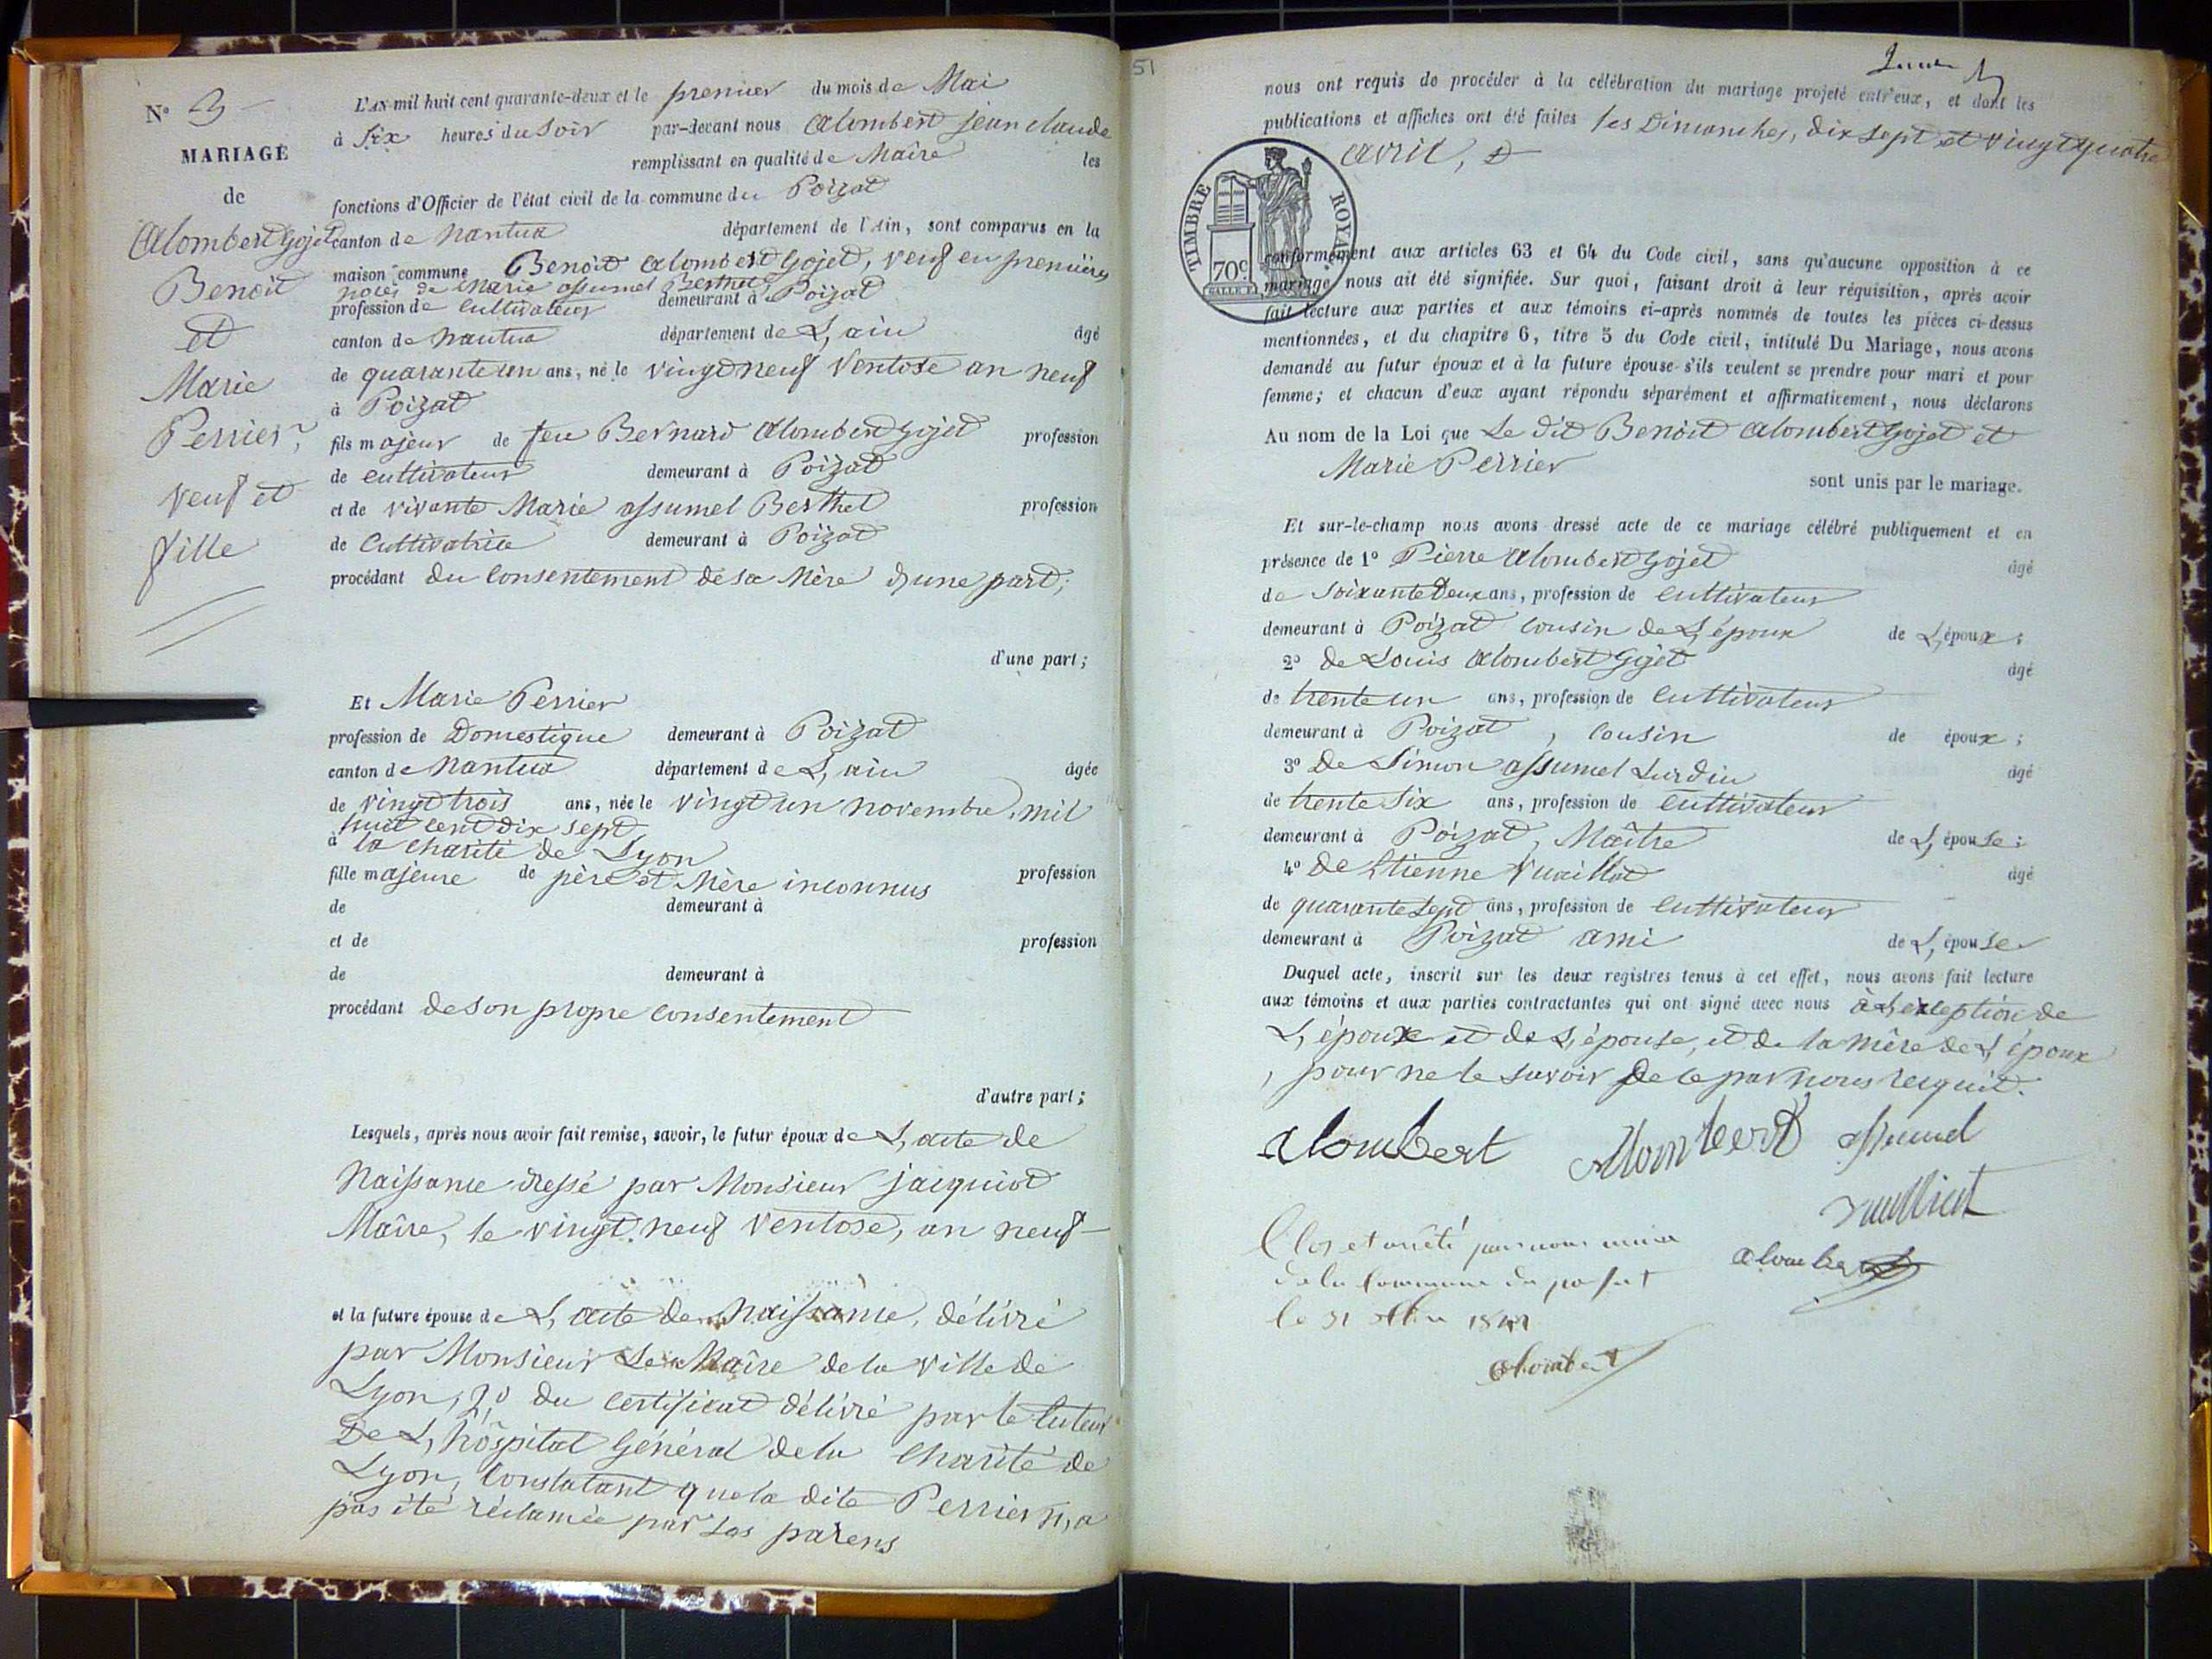 N° 3
MARIAGE
de
Alombert Gojet
Benoit
et
Marie
Perrier,
veuf et
fille
L'AN mil huit cent quarante-deux et le premier du mois de Mai
à Six heures du Soir par-devant nous Alombert jean claude
remplissant en qualité de Maire les
fonctions d'Officier de l'état civil de la commune du Poizat
canton de Nantua département de l'Ain, sont comparus en la
maison commune Benoit Alombert Gojet, veuf en premières
noces de Marie assumel Berthet
profession de Cultivateur demeurant à Poizat
canton de Nantua département de L,ain âgé
de quarante un ans, né le vingt neuf Ventose an neuf
à Poizat
fils majeur de feu Bernard Alombert Gojet profession
de cultivateur demeurant à Poizat
et de vivante Marie assumel Berthet profession
de Cultivatrice demeurant à Poizat
procédant du Consentement de sa Mère d,une part;
d'une part;
Et Marie Perrier
profession de Domestique demeurant à Poizat
canton de Nantua département de L,ain âgée
de vingt trois ans, née le vingt un novembre, mil
huit cent dix sept
à la charité de Lyon
fille majeure de père et Mère inconnus profession
de demeurant à
et de profession
de demeurant à
procédant de son propre Consentement
d'autre part;
Lesquels, après nous avoir fait remise, savoir, le futur époux de L,acte de
Naissance dressé par Monsieur jacquiot
Maire, le vingt neuf Ventose, an neuf
et la future épouse de L,acte de Naissance, délivré
par Monsieur Le Maire de la Ville de
Lyon, 2° du Certificat délivré par le tuteur
De L,hôspital Général de la Charité de
Lyon, Constatant que la dite Perrier N,a
pas été réclamée par Les parens
51
nous ont requis de procéder à la célébration du mariage projeté entr'eux, et dont les
publications et affiches ont été faites les Dimanches, dix sept et vingt quatre
avril,
TIMBRE ROYAL
70c
conformément aux articles 63 et 64 du Code civil, sans qu'aucune opposition à ce
mariage nous ait été signifiée. Sur quoi, faisant droit à leur réquisition, après avoir
fait lecture aux parties et aux témoins ci-après nommés de toutes les pièces ci-dessus
mentionnées, et du chapitre 6, titre 5 du Code civil, intitulé Du Mariage, nous avons
demandé au futur époux et à la future épouse s'ils veulent se prendre pour mari et pour
femme; et chacun d'eux ayant répondu séparément et affirmativement, nous déclarons
Au nom de la Loi que Le dit Benoit Alombert Gojet et
Marie Perrier
sont unis par le mariage.
Et sur-le-champ nous avons dressé acte de ce mariage célébré publiquement et en
présence de 1° Pierre Alombert Gojet âgé
de Soixante Deux ans, profession de Cultivateur
demeurant à Poizat cousin de L,époux de L,époux;
2° de Louis Alombert Gojet âgé
de trente un ans, profession de Cultivateur
demeurant à Poizat, Cousin de époux;
3° De Simon assumel Lurdin âgé
de trente Six ans, profession de Cultivateur
demeurant à Poizat, Maître de L,épouse;
4° De Etienne Vuaillat âgé
de quarante Sept ans, profession de Cultivateur
demeurant à Poizat ami de L,épouse
Duquel acte, inscrit sur les deux registres tenus à cet effet, nous avons fait lecture
aux témoins et aux parties contractantes qui ont signé avec nous à L,exception de
L,époux et de L,épouse, et de la Mère de L,époux
, pour ne le Savoir De ce par nous requit.
Alombert Alombert assumel
Vuailliat
Clos et arrêté par nous maire
de la Commune du poizat
le 31 1842
Alombert
Alombert